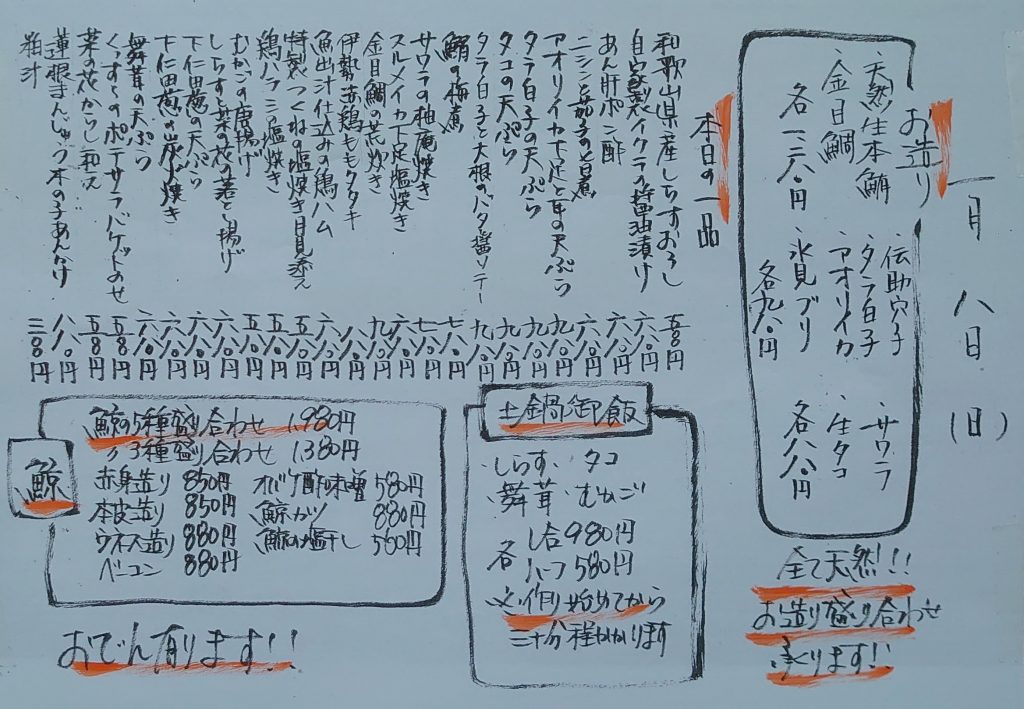 一月八日(日)
お造り
、天然生本鮪
、金目鯛
各一二八〇円
、伝助穴子
、タラ白子
、アオリイカ
、氷見ブリ
各九八〇円
、サワラ
、生タコ
各八八〇円
全て天然!!
お造り盛り合わせ
承ります!!
本日の一品
和歌山県産しらすおろし 五八〇円
自家製イクラの醤油漬け 六八〇円
あん肝ポン酢 六八〇円
ニシンと茄子の旨煮 六八〇円
アオリイカ下足と耳の天ぷら 九八〇円
タラ白子の天ぷら 九八〇円
タコの天ぷら 九八〇円
タラ白子と大根のバタ醤ソテー 九八〇円
鰯の梅煮 七八〇円
サワラの柚庵焼き 七八〇円
スルメイカ下足塩焼き 六八〇円
金目鯛の荒炊き 九八〇円
伊勢赤鶏ももタタキ 八八〇円
魚出汁仕込みの鶏ハム 六八〇円
特製つくねの塩焼き月見添え 五八〇円
鶏ハラミの塩焼き 五八〇円
むかごの唐揚げ 五八〇円
しらすと菜の花の落とし揚げ 六八〇円
下仁田葱の天ぷら 六八〇円
下仁田葱の炭火焼き 六八〇円
舞茸の天ぷら 六八〇円
くんすけのポテサラバケットのせ 五八〇円
菜の花からし和え 五八〇円
蓮根まんじゅう木の子あんかけ 八八〇円
粕汁 三八〇円
土鍋御飯
・しらす・タコ
・舞茸・むかご
各 一合980円
ハーフ580円
※作り始めてから
三十分程かかります
鯨
鯨の5種盛り合わせ 1,980円
〃3種盛り合わせ 1,380円
赤身造り 850円 オバケ酢味噌 580円
本皮造り 850円 鯨カツ 880円
ウネス造り 880円 鯨の塩干し 580円
ベーコン 880円
おでん有ります!!